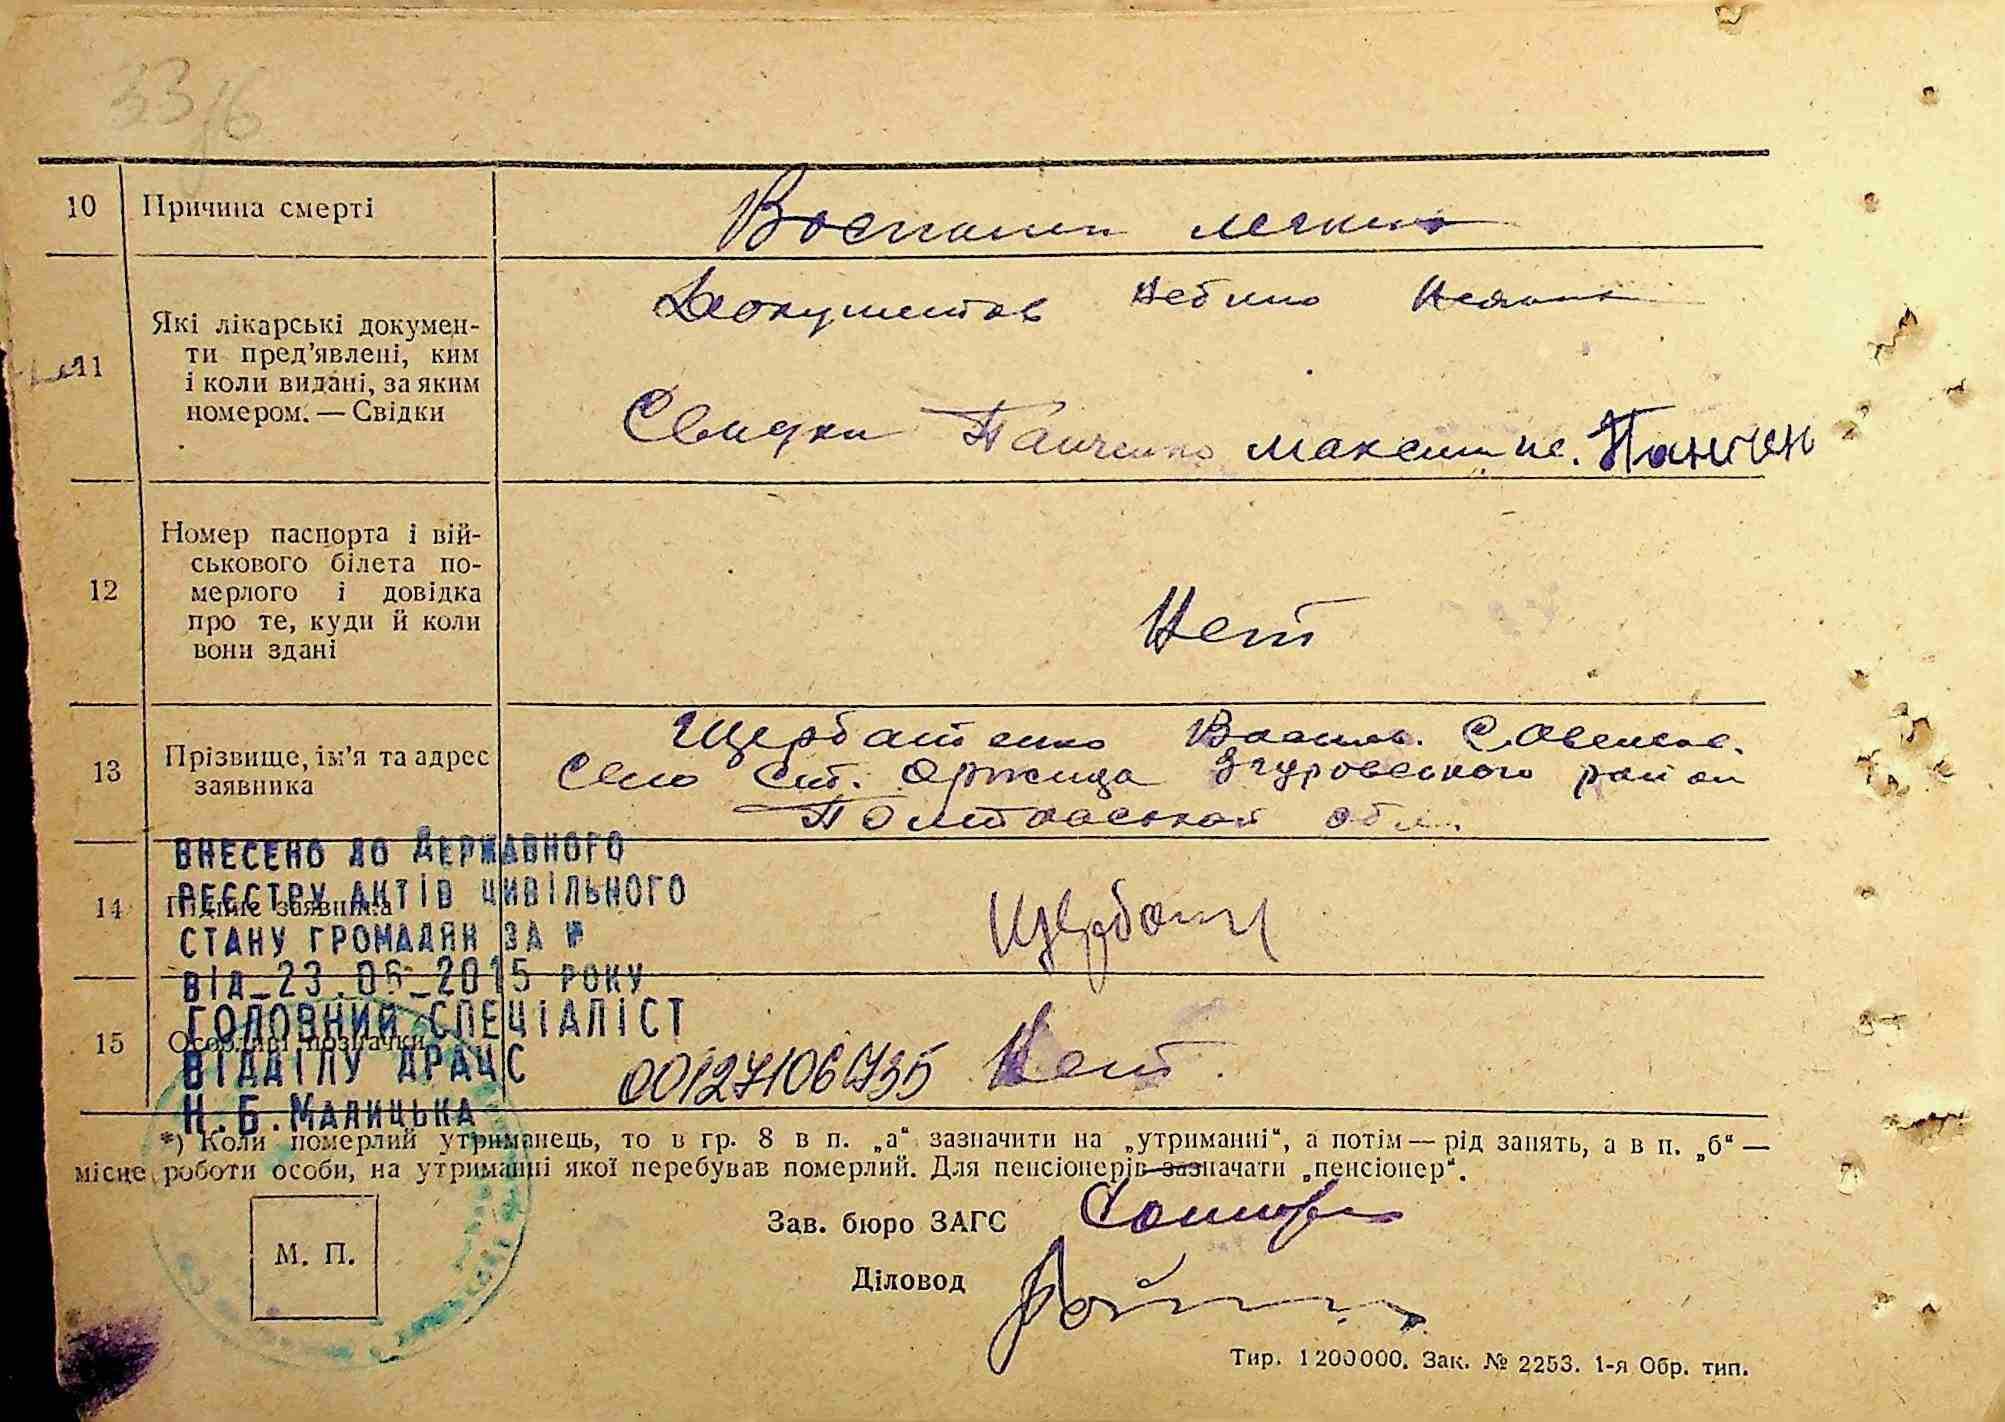 10 Причина смерті
Воспален легких
11 Які лікарські докумен-
ти пред'явлені, ким
і коли видані, за яким
номером. — Свідки
Документов небило
Свидки Панченко Максим
12 Номер паспорта і вій-
ськового білета по-
мерлого і довідка
про те, куди й коли
вони здані
Нет
13 Прізвище, ім'я та адрес
заявника
Щербатенко
Село Оржица Згуровського район
Полтавской обл.
14 Підпис заявника
15 Особливі позначки
Нет.
ВНЕСЕНО ДО ДЕРЖАВНОГО
РЕЄСТРУ АКТІВ ЦИВІЛЬНОГО
СТАНУ ГРОМАДЯН ЗА №
ВІД 23.06 2015 РОКУ
ГОЛОВНИЙ СПЕЦІАЛІСТ
ВІДДІЛУ ДРАЦС
Н.Б.МАЛИЦЬКА
*) Коли померлий утриманець, то в гр. 8 в п. „а“ зазначити на „утриманні“, а потім — рід занять, а в п. „б“ —
місце роботи особи, на утриманні якої перебував померлий. Для пенсіонерів зазначати „пенсіонер“.
Зав. бюро ЗАГС
М. П.
Діловод
Тир. 1200000. Зак. № 2253. 1-я Обр. тип.